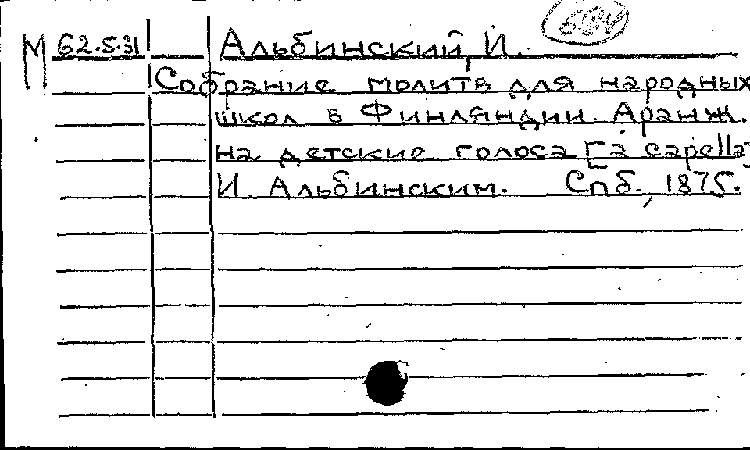 М 62.5.31 Альбинский, И.
Собрание молитв для народных
школ в Финляндии. Аранж.
на детские голоса [a capella]
И. Альбинским. Спб., 1875.